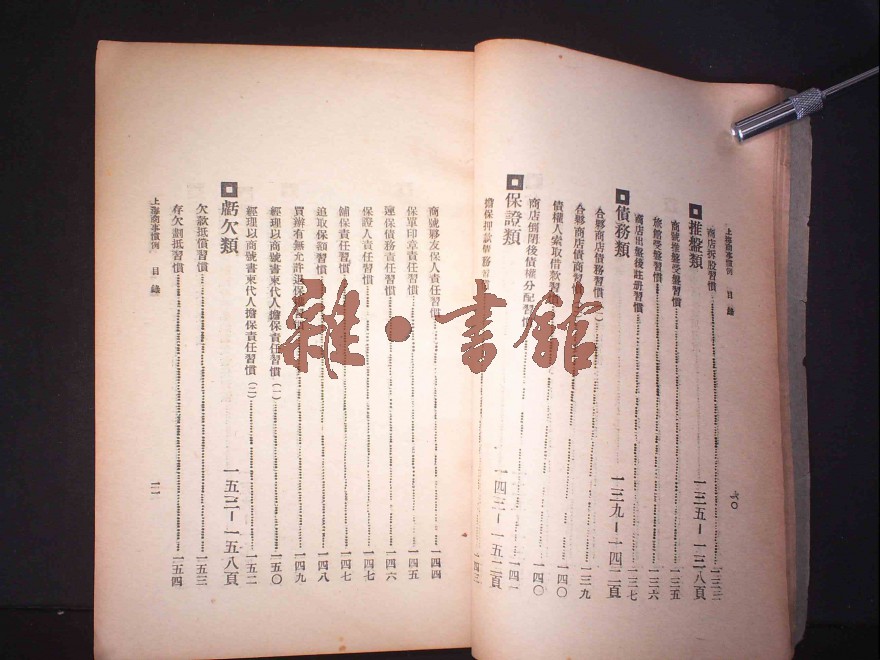 上海商事慣例 目錄
商店拆股習慣 一三三
推盤類 一三五—一三八頁
商號推盤受盤習慣 一三五
旅館受盤習慣 一三六
商店出盤後註册習慣 一三七
債務類 一三九—一四二頁
合夥商店債務習慣(一) 一三九
合夥商店債商習慣
債權人索取借款習慣 一四〇
商店倒閉後債權分配習慣 一四〇
一四一
保證類 一四三—一五二頁
擔保押款債務習 一四三
商號夥友保人責任習慣 一四四
保單印章責任習慣 一四五
連保債務責任習慣 一四六
保證人責任習慣 一四七
鋪保責任習慣 一四七
追取保額習慣 一四八
買辦有無允許退保 習慣 一四九
經理以商號書柬代人擔保責任習慣(一) 一五〇
經理以商號書柬代人擔保責任習慣(二) 一五二
虧欠類 一五三—一五八頁
欠款抵償習慣 一五三
存欠劃抵習慣 一五四
上海商事慣例 目錄 一一
雜·書館